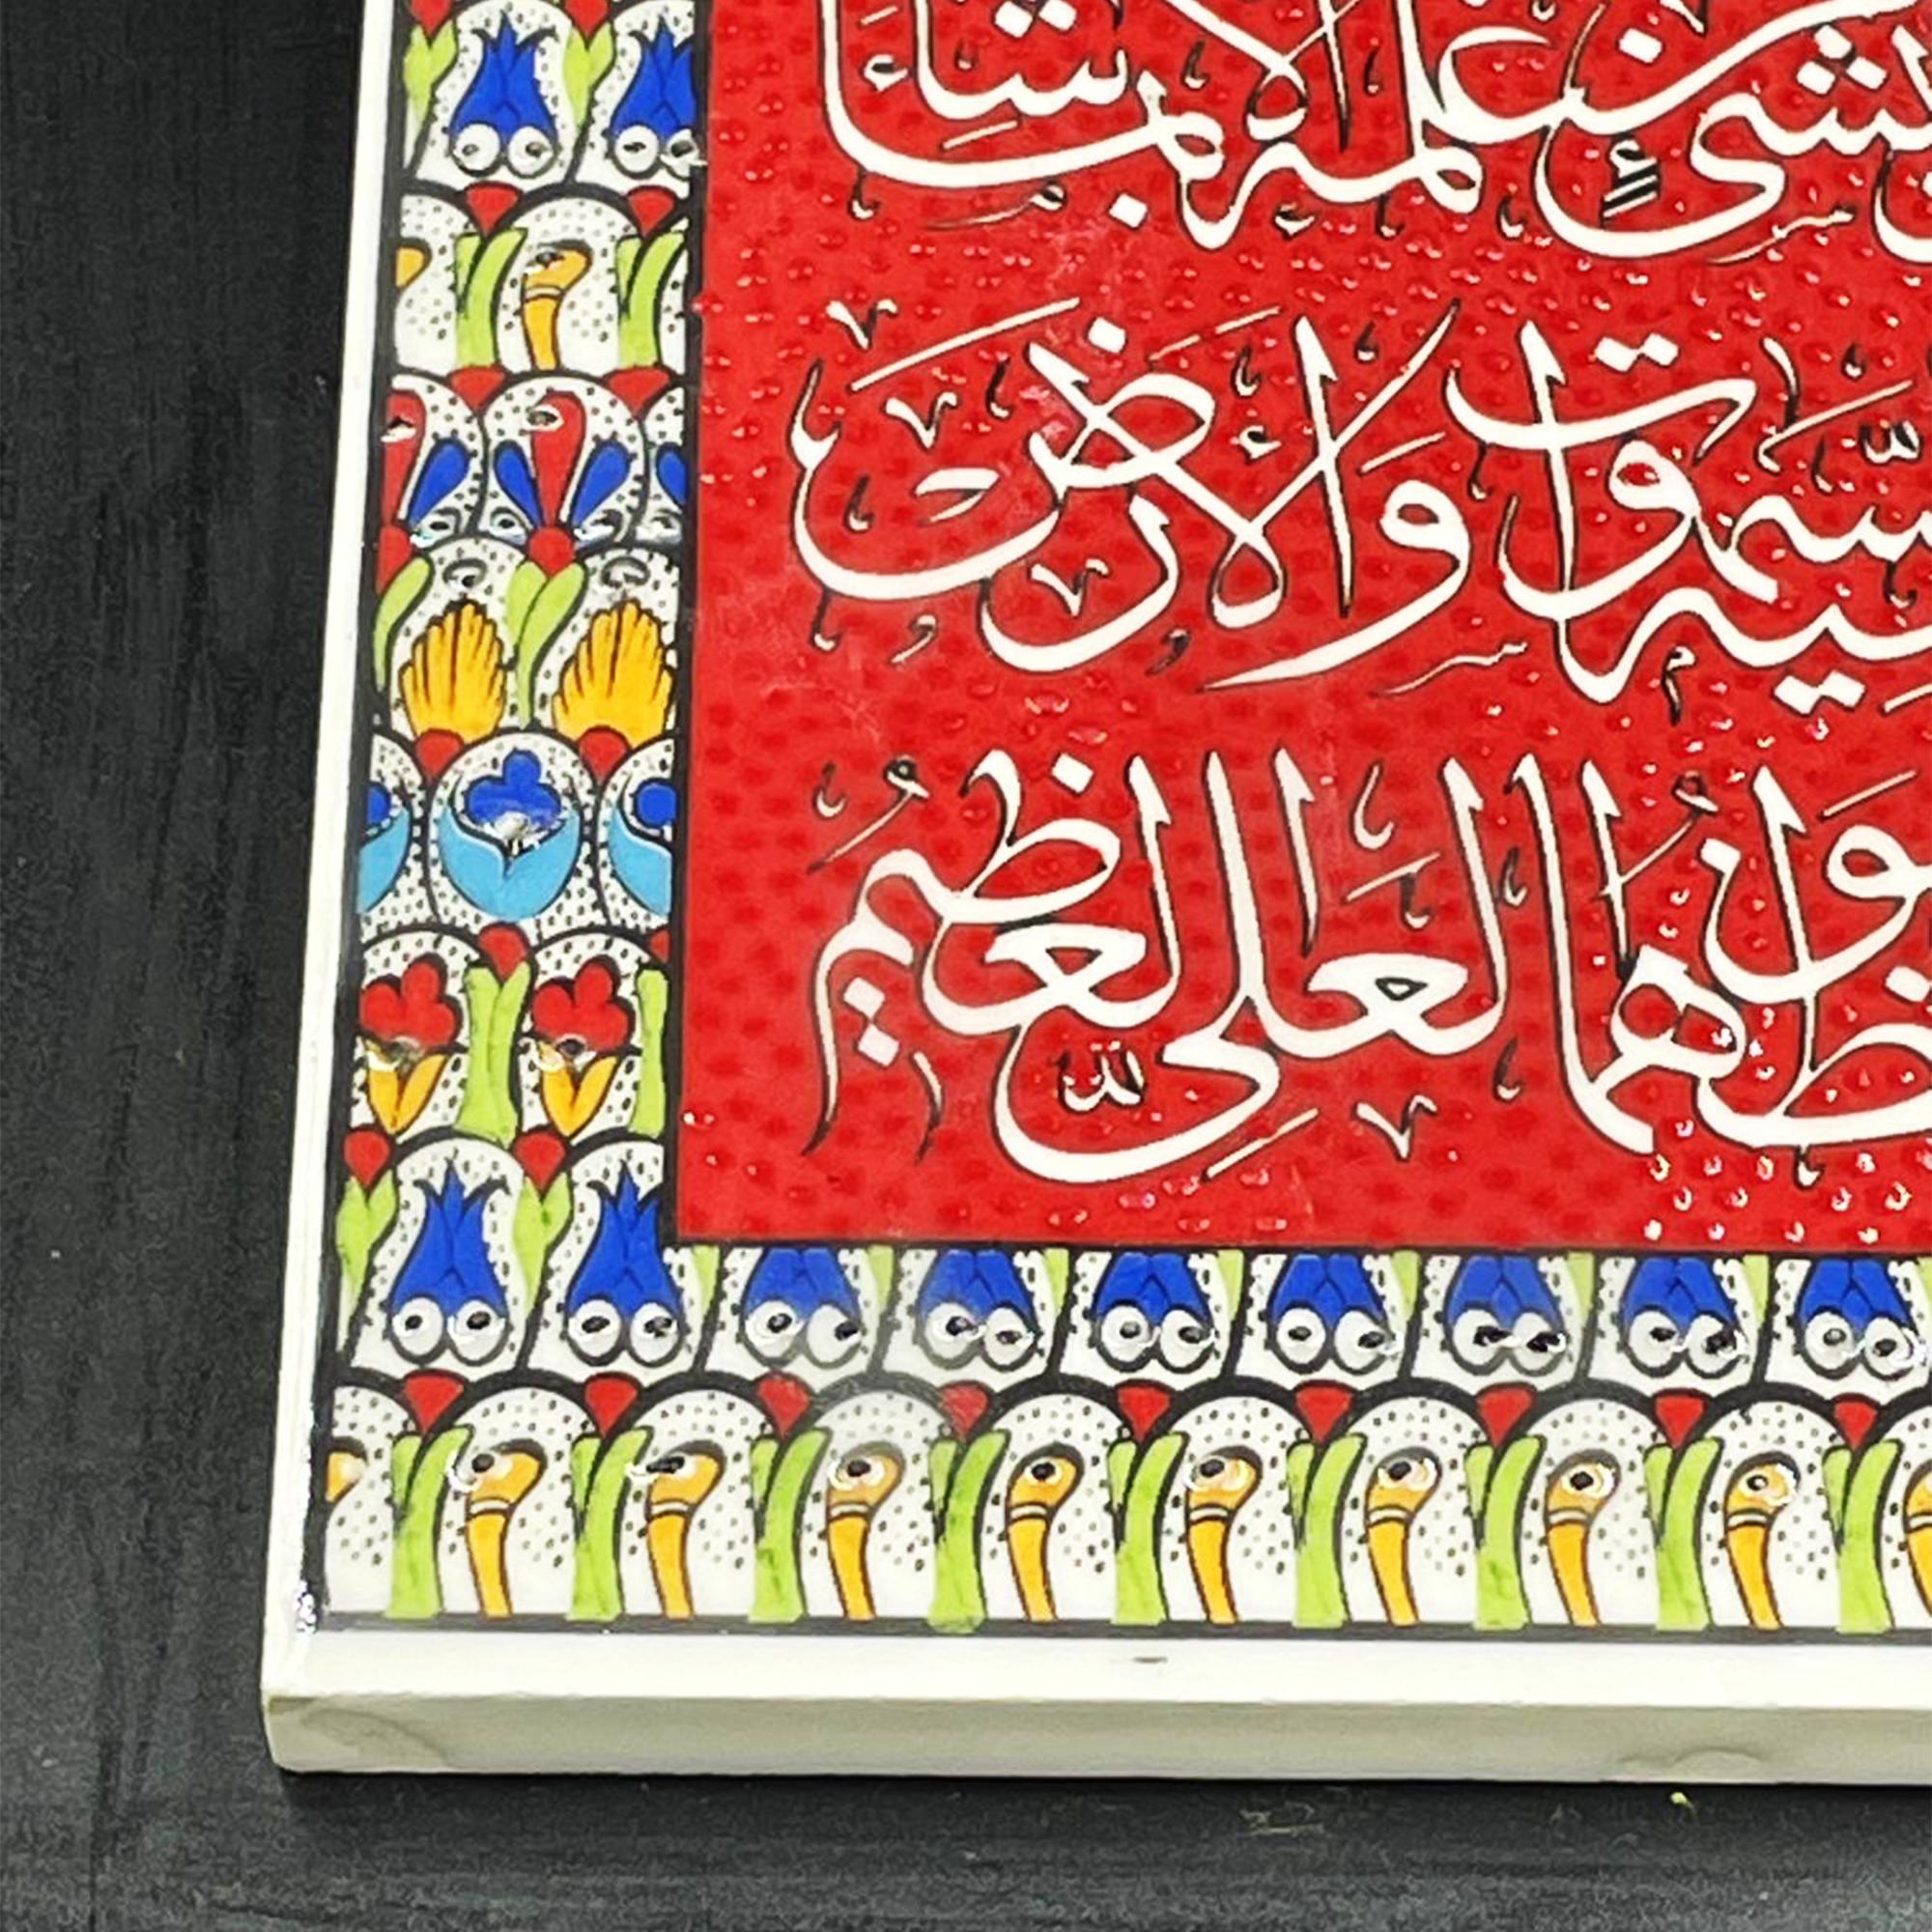 بِشَيْءٍ مِنْ عِلْمِهِ إِلَّا بِمَا شَاءَ
السَّمٰوَاتِ وَالْأَرْضَ
حِفْظُهُمَا وَهُوَ الْعَلِيُّ الْعَظِيمُ